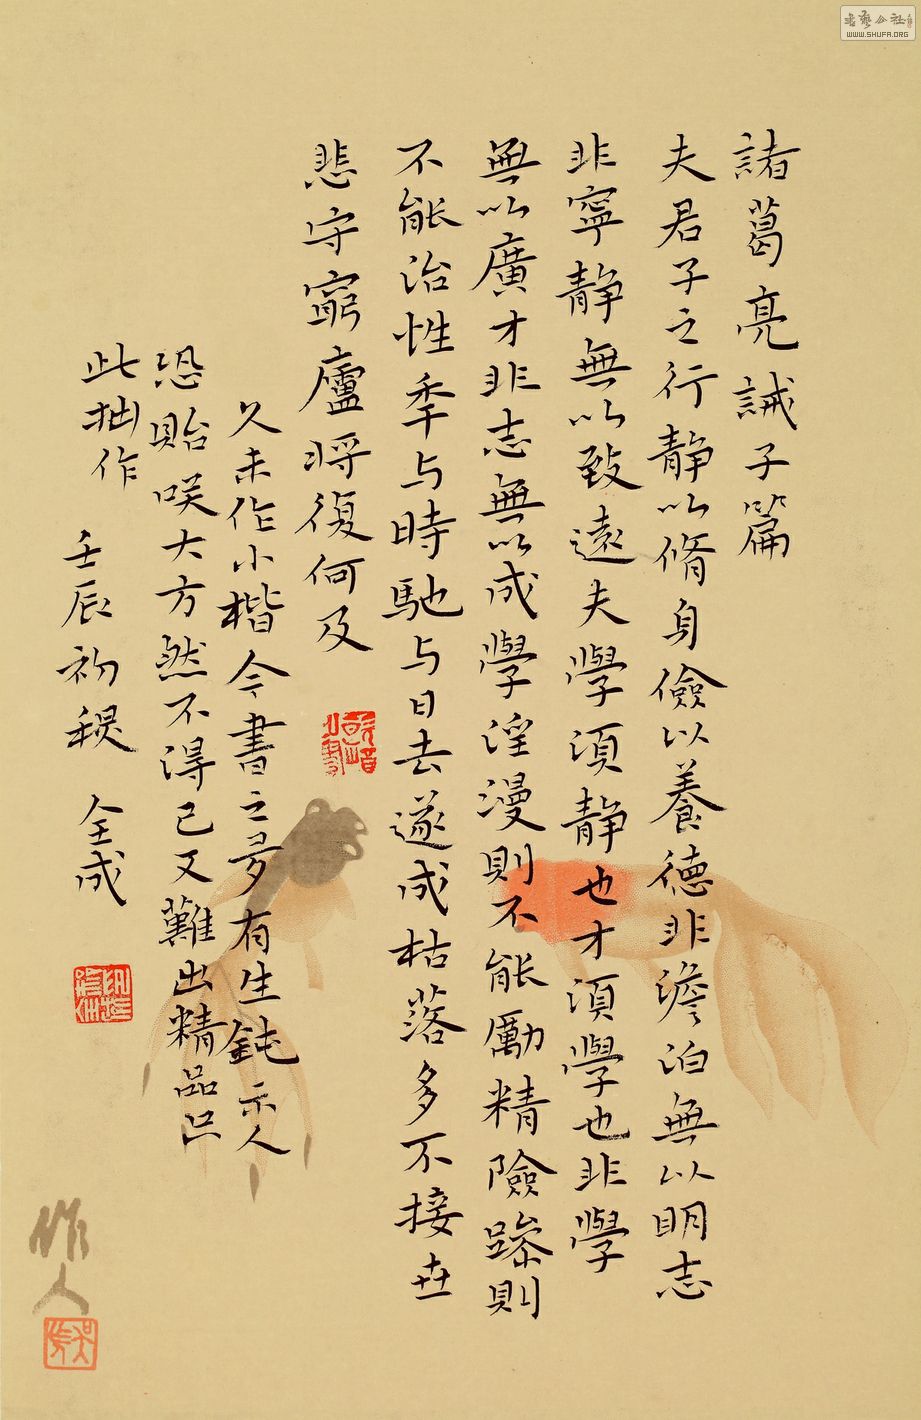 諸葛亮誡子篇
夫君子之行静以脩身儉以養德非澹泊無以明志
非寧静無以致遠夫學須静也才須學也非學
無以廣才非志無以成學淫漫則不能勵精險躁則
不能治性秊与時馳与日去遂成枯落多不接世
悲守窮廬將復何及
久未作小楷今書之多有生鈍示人
恐貽咲大方然不得已又難出精品只
此拙作
壬辰初稷 全成
作人
書藝公社
WWW.SHUFA.ORG